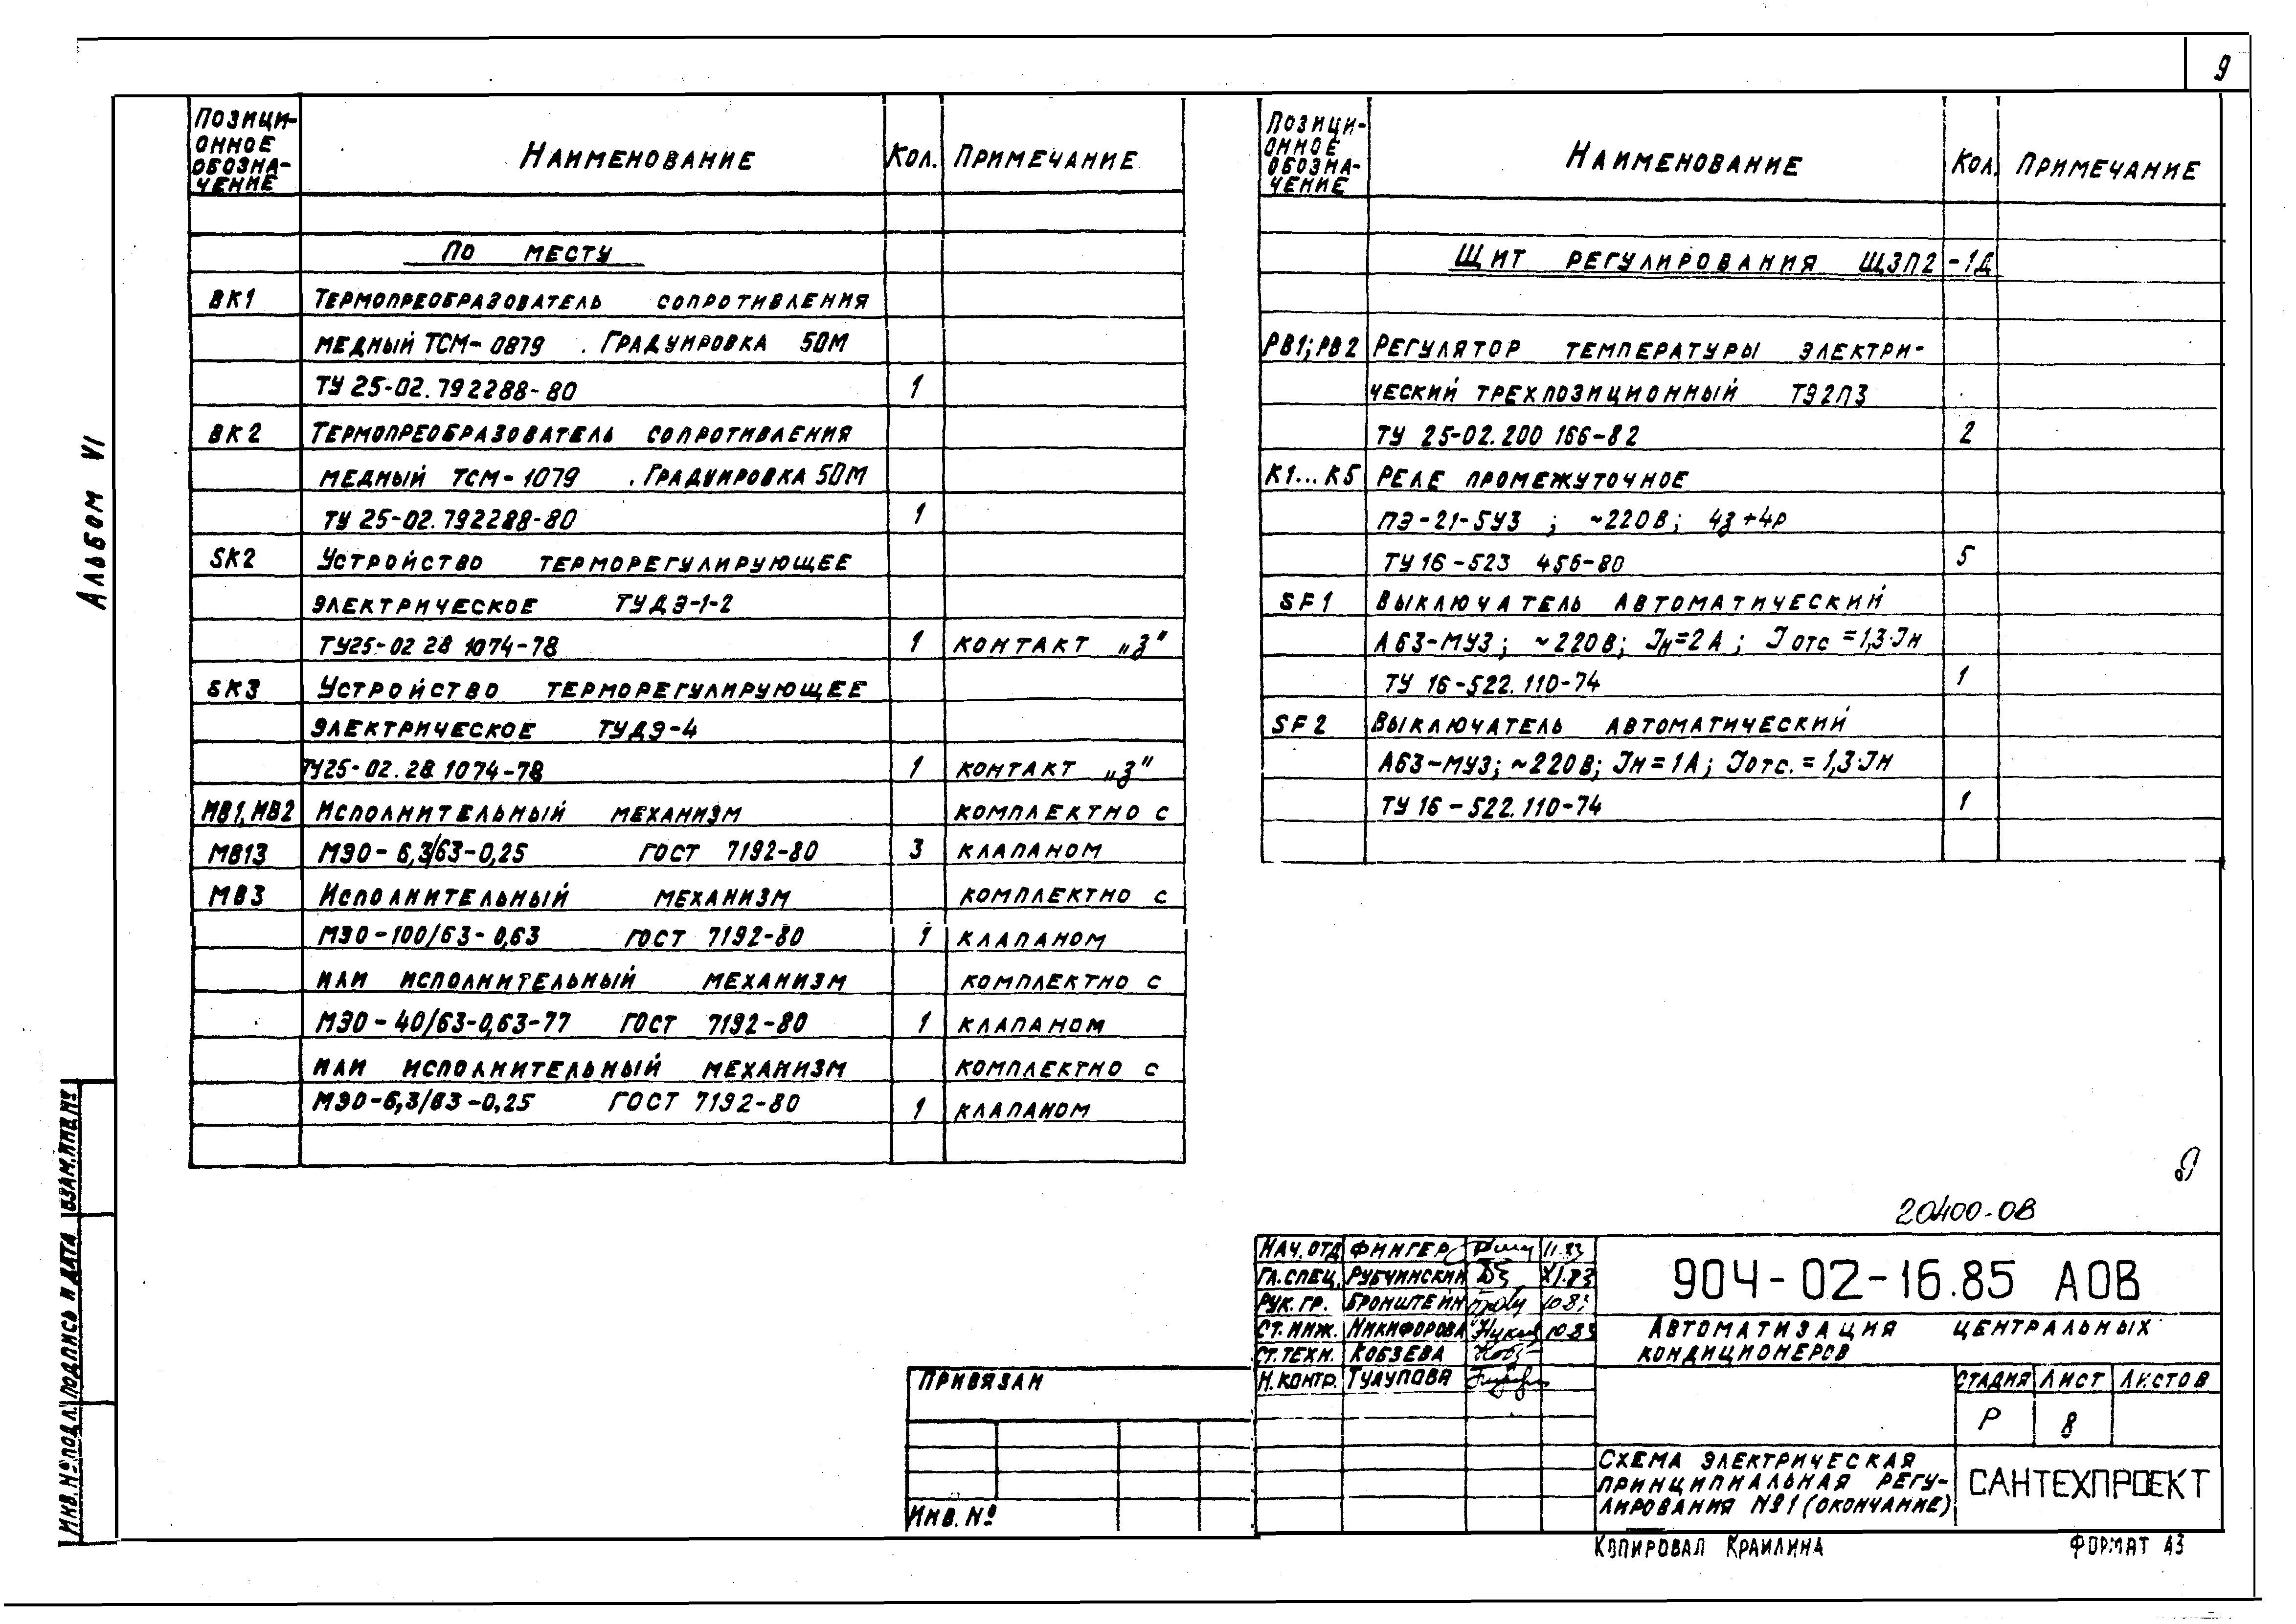 9
Альбом VI
Позици-
онное
обозна-
чение
Наименование
Кол.
Примечание
По месту
ВК1 Термопреобразователь сопротивления
медный ТСМ-0879 . Градуировка 50М
ТУ 25-02.792288-80 1
ВК2 Термопреобразователь сопротивления
медный ТСМ-1079 . Градуировка 50М
ТУ 25-02.792288-80 1
SK2 Устройство терморегулирующее
электрическое ТУДЭ-1-2
ТУ25-02 28 1074-78 1 контакт „з"
SK3 Устройство терморегулирующее
электрическое ТУДЭ-4
ТУ25-02.28.1074-78 1 контакт „з"
МВ1, МВ2 Исполнительный механизм комплектно с
МВ13 МЭО-6,3/63-0,25 ГОСТ 7192-80 3 клапаном
МВ3 Исполнительный механизм комплектно с
МЭО-100/63-0,63 ГОСТ 7192-80 1 клапаном
или исполнительный механизм комплектно с
МЭО-40/63-0,63-77 ГОСТ 7192-80 1 клапаном
или исполнительный механизм комплектно с
МЭО-6,3/63-0,25 ГОСТ 7192-80 1 клапаном
Позици-
онное
обозна-
чение
Наименование
Кол.
Примечание
Щит регулирования ЩЗП2-1Д
РВ1; РВ2 Регулятор температуры электри-
ческий трехпозиционный ТЭ2П3
ТУ 25-02.200 166-82 2
К1...К5 Реле промежуточное
ПЭ-21-5У3 ; ~220В; 4з+4р
ТУ16-523 456-80 5
SF1 Выключатель автоматический
А63-МУ3; ~220В; Iн=2А; Iотс=1,3·Iн
ТУ 16-522.110-74 1
SF2 Выключатель автоматический
А63-МУ3; ~220В; Iн=1А; Iотс.=1,3·Iн
ТУ 16-522.110-74 1
20400-08
9
Нач. отд Фингер 11.83
Гл. спец. Рубчинский XI.83
Рук. гр. Бронштейн 10.83
Ст. инж. Никифорова 10.83
Ст. техн. Кобзева
Н. контр. Тулупова
904-02-16.85 АОВ
Автоматизация центральных
кондиционеров
Стадия Лист Листов
Р 8
Схема электрическая
принципиальная регу-
лирования №1 (окончание)
САНТЕХПРОЕКТ
Привязан
Инв. №
Инв. № подл. Подпись и дата Взам. инв. №
Копировал Краилина Формат А3